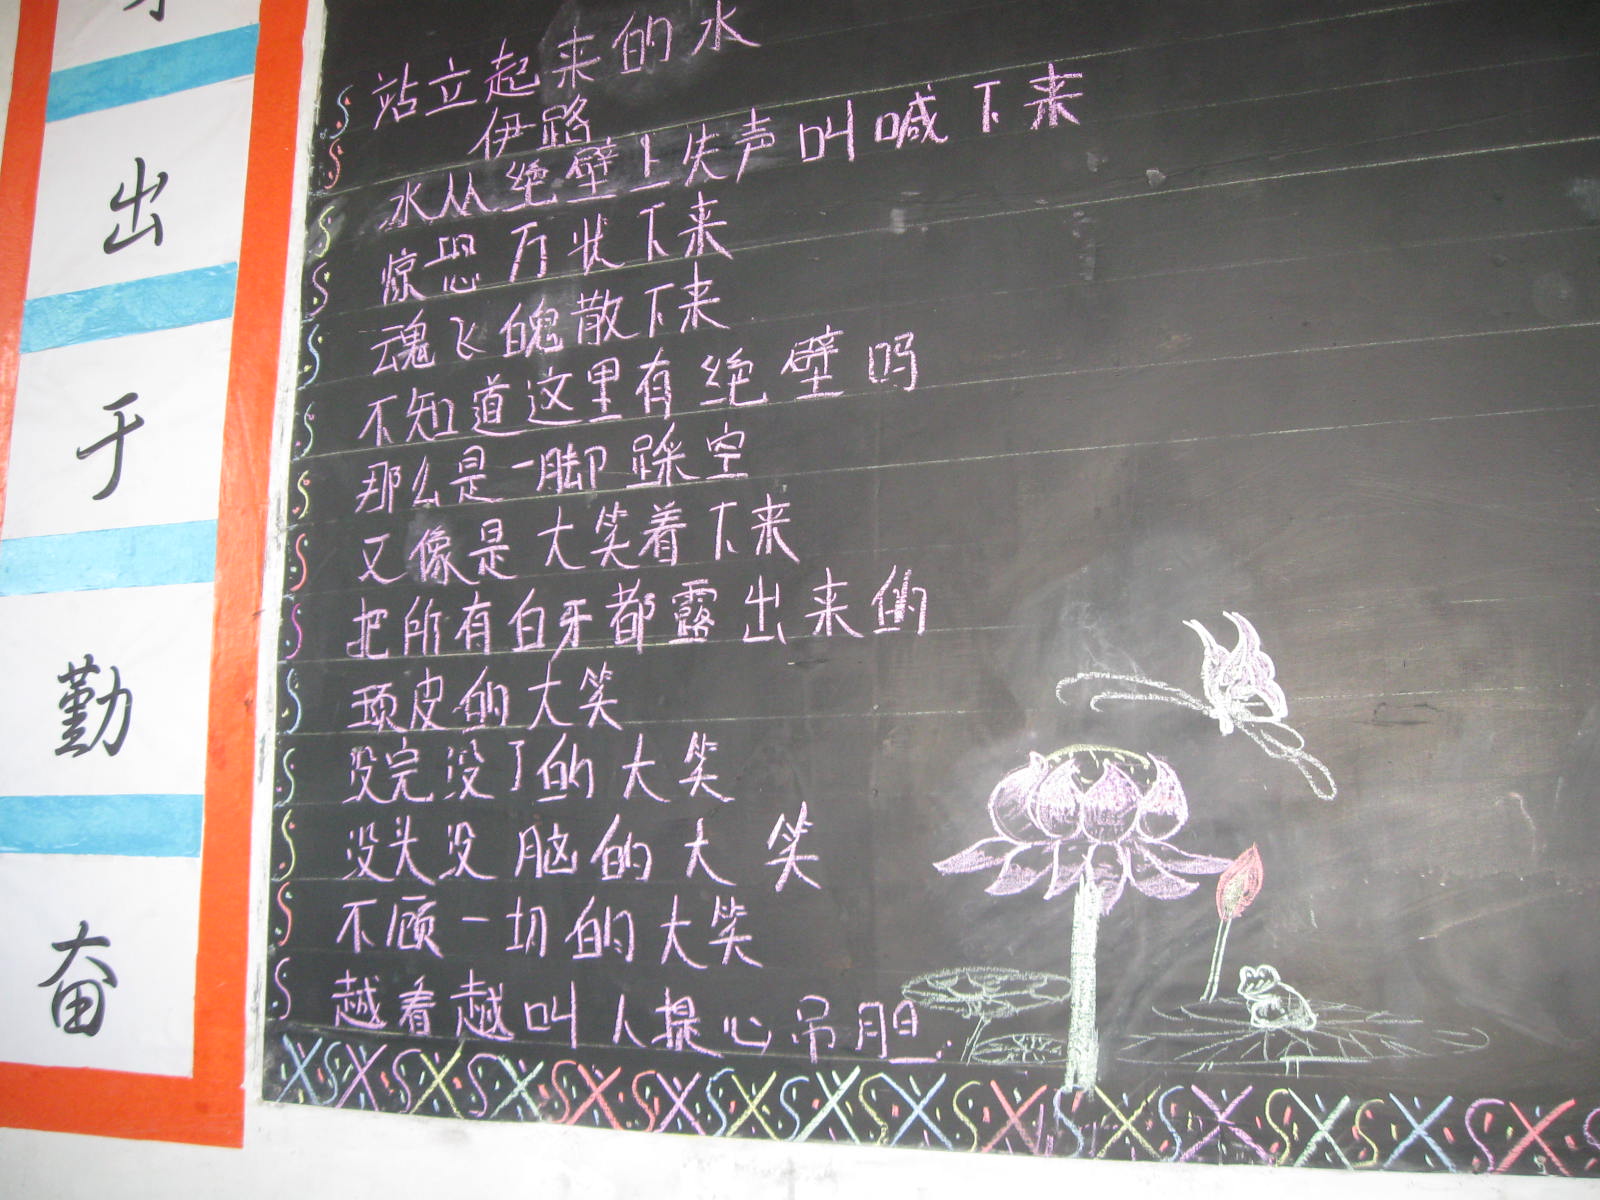 出
于
勤
奋
站立起来的水
伊路
水从绝壁上失声叫喊下来
惊恐万状下来
魂飞魄散下来
不知道这里有绝壁吗
那么是一脚踩空
又像是大笑着下来
把所有白牙都露出来的
顽皮的大笑
没完没了的大笑
没头没脑的大笑
不顾一切的大笑
越看越叫人提心吊胆